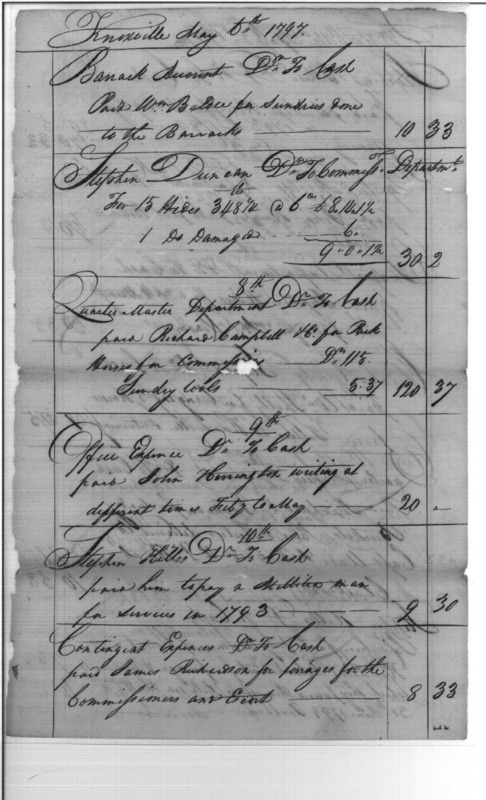 Knoxville May 6th 1797.
Barrack Account Dr. To Cash
Paid Wm. Baldee for Sundries done
to the Barracks 10 33
Stephen Duncan Dr. To Commissy. Departmt.
For 15 Hides 348 1/2 lb @ 6d £8.14.1 1/2
1 Do Damaged 6.
9.0.1 1/2 30 2
8th
Quarter Master Department Dr. To Cash
paid Richard Campbell for Pack
Horses for Commissioners Drs 115.
Sundry tools 5.37 120 37
9th
Office Expence Dr. To Cash
paid John Herrington writing at
different times Feby to May 20 "
10th
Stephen Hilles Dr. To Cash
paid him to pay a Militia man
for Services in 1793 9 30
Contingent Expences Dr. To Cash
paid James Richardson for feriages for the
Commissioners and Escort 8 33